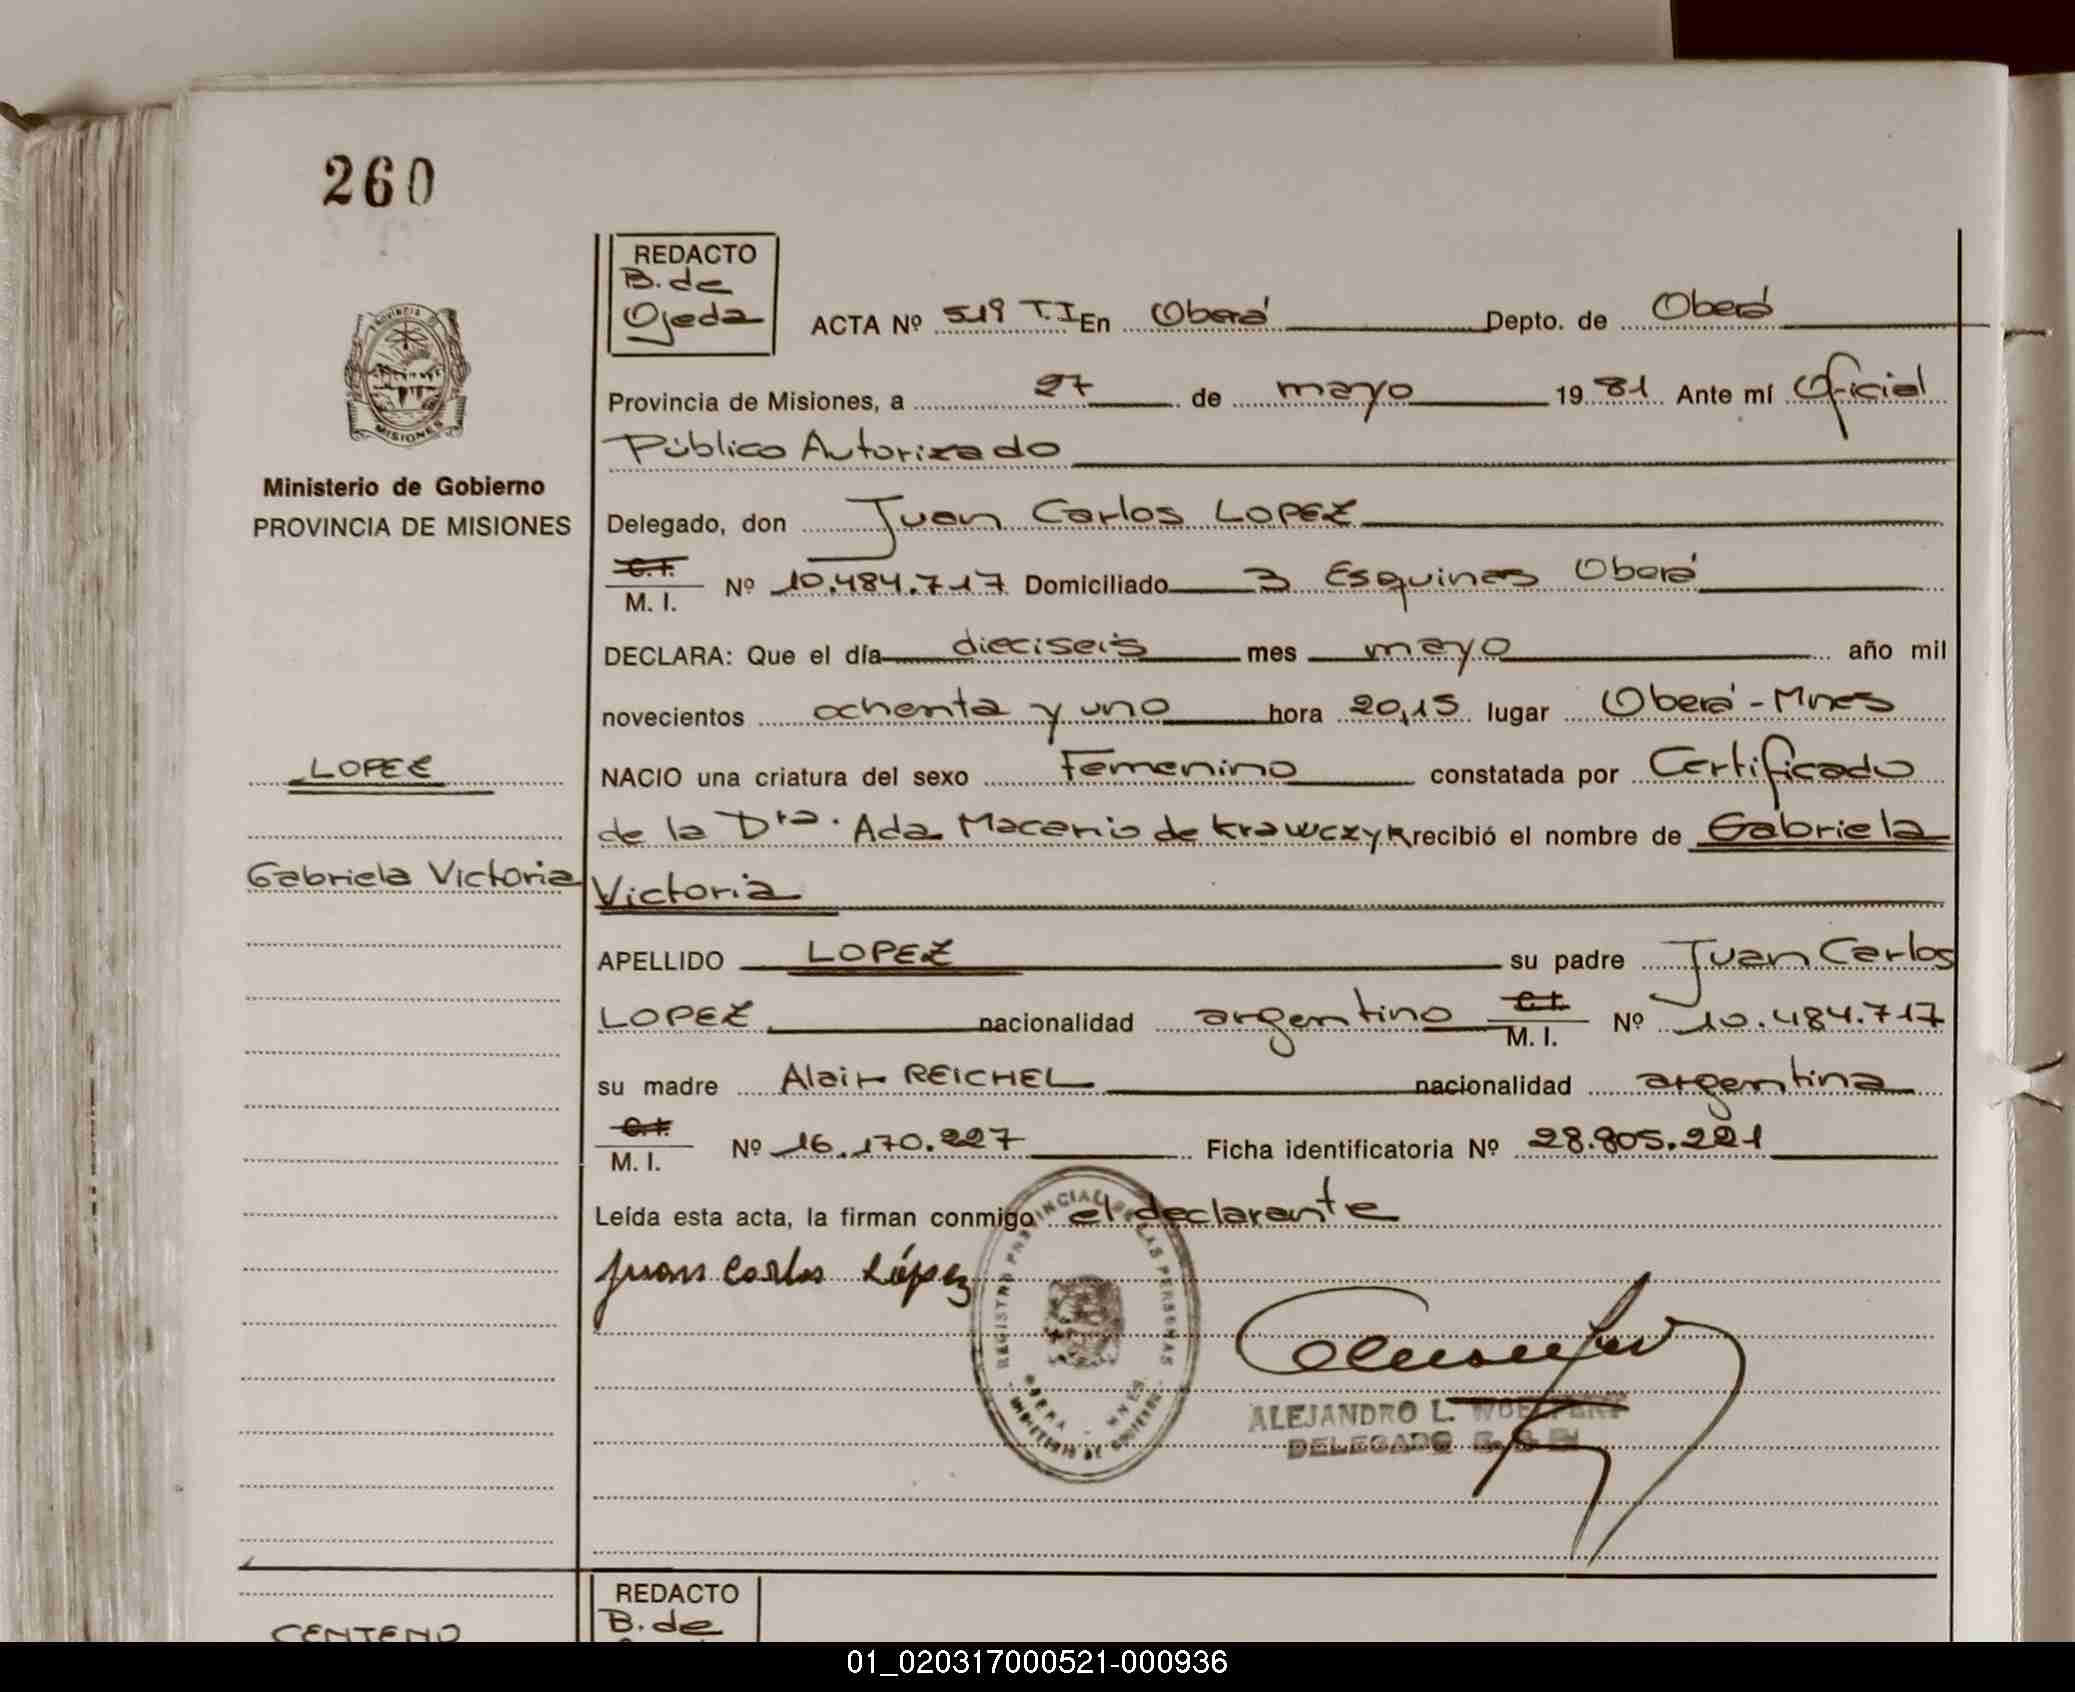 260
REDACTO
B. de
Ojeda
ACTA Nº 519 T.I En Oberá Depto. de Oberá
MISIONES
Provincia de Misiones, a 27 de mayo 1981 Ante mí Oficial
Público Autorizado
Ministerio de Gobierno
PROVINCIA DE MISIONES
Delegado, don Juan Carlos LOPEZ
C.I.
M. I. Nº 10.484.717 Domiciliado 3 Esquinas Oberá
DECLARA: Que el día dieciseis mes mayo año mil
novecientos ochenta y uno hora 20,15 lugar Oberá - Mnes
LOPEZ
NACIO una criatura del sexo Femenino constatada por Certificado
de la Dra. Ada Macenio de Krawczyk recibió el nombre de Gabriela
Gabriela Victoria
Victoria
APELLIDO LOPEZ su padre Juan Carlos
LOPEZ nacionalidad argentino C.I. M. I. Nº 10.484.717
su madre Alair REICHEL nacionalidad argentina
C.I.
M. I. Nº 16.170.227 Ficha identificatoria Nº 28.805.221
Leída esta acta, la firman conmigo el declarante
Juan Carlos López
REGISTRO PROVINCIAL DE LAS PERSONAS
OBERA MNES.
MINISTERIO DE GOBIERNO
ALEJANDRO L.
DELEGADO
REDACTO
B. de
CENTENO
01_020317000521-000936